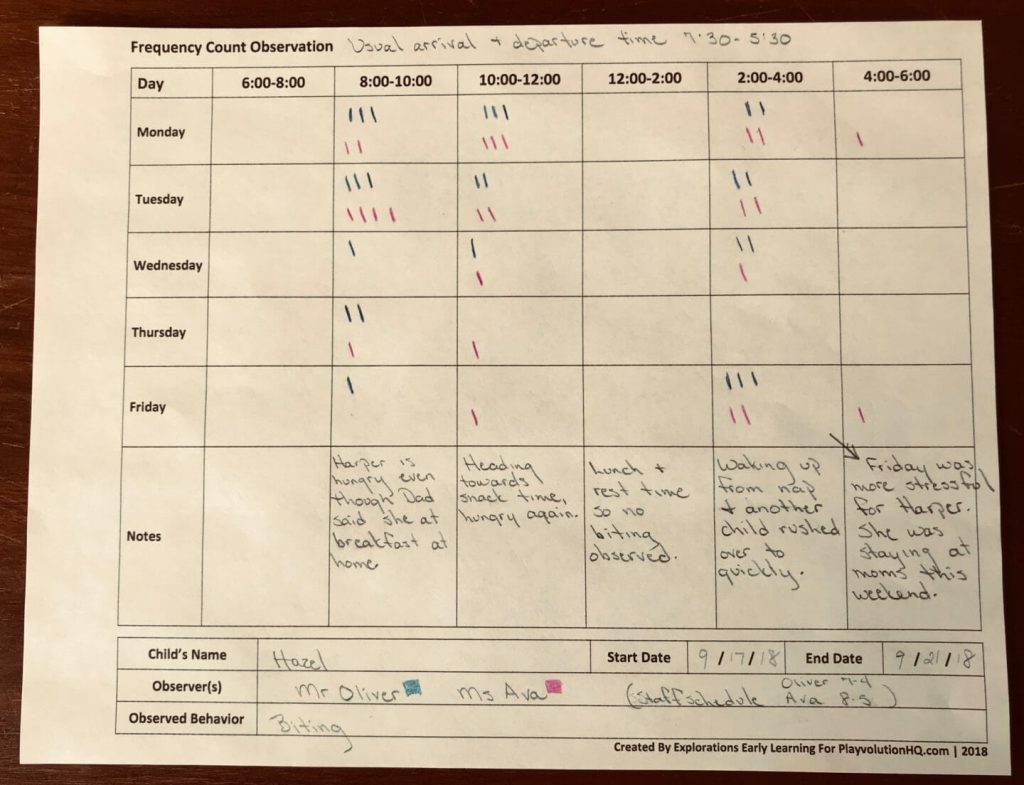 Frequency Count Observation Usual arrival + departure time 7:30-5:30
Day 6:00-8:00 8:00-10:00 10:00-12:00 12:00-2:00 2:00-4:00 4:00-6:00
Monday
Tuesday
Wednesday
Thursday
Friday
Notes
Harper is
hungry even
though Dad
said she at
breakfast at
home
Heading
towards
snack time,
hungry again.
Lunch +
rest time
so no
biting
observed.
Waking up
from nap
+ another
child rushed
over to
quickly.
Friday was
more stressful
for Harper.
She was
staying at
moms this
weekend.
Child's Name Hazel Start Date 9/17/18 End Date 9/21/18
Observer(s) Mr Oliver Ms Ava (Staff schedule Oliver 7-4
Ava 8-5)
Observed Behavior Biting
Created By Explorations Early Learning For PlayvolutionHQ.com | 2018